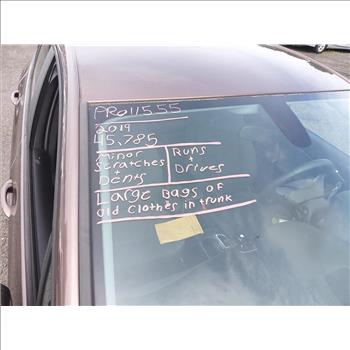 PRO11555
2019
45,785
Minor
Scratches
+
Dents
Runs
+
Drives
Large Bags of
old clothes in trunk